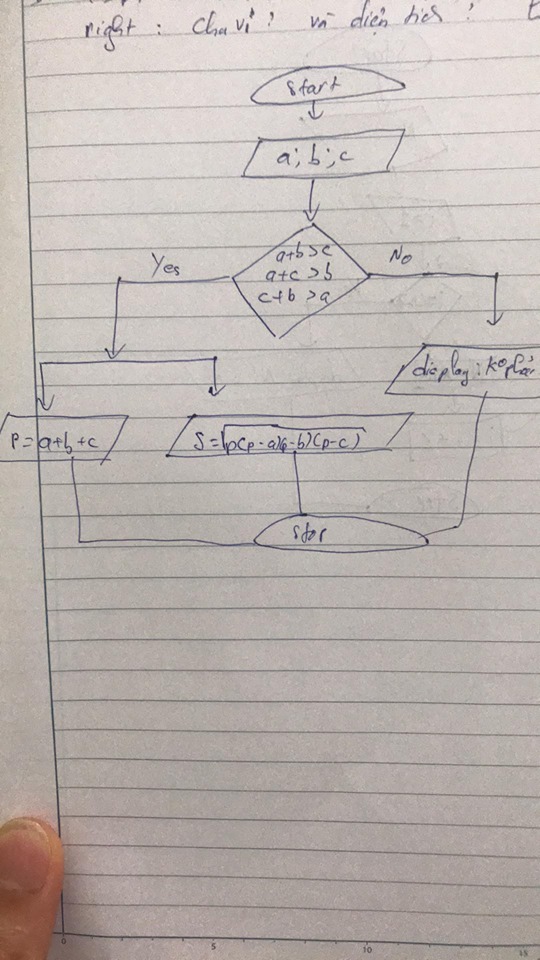 right : cha vi ? và diện tích ?
start
a; b; c
Yes
a+b>c
a+c>b
c+b>a
No
display : ko phải
P=a+b+c
S=√p(p-a)(p-b)(p-c)
stop
0 5 10 15